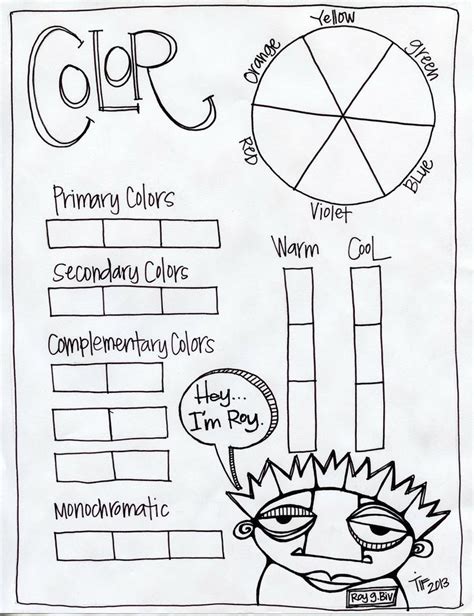 COLOR
Yellow
Orange
green
RED
BLUE
Violet
Primary Colors
Warm
COOL
Secondary Colors
Complementary Colors
Hey...
I'm Roy.
Monochromatic
Roy g. Biv
TIF 2013